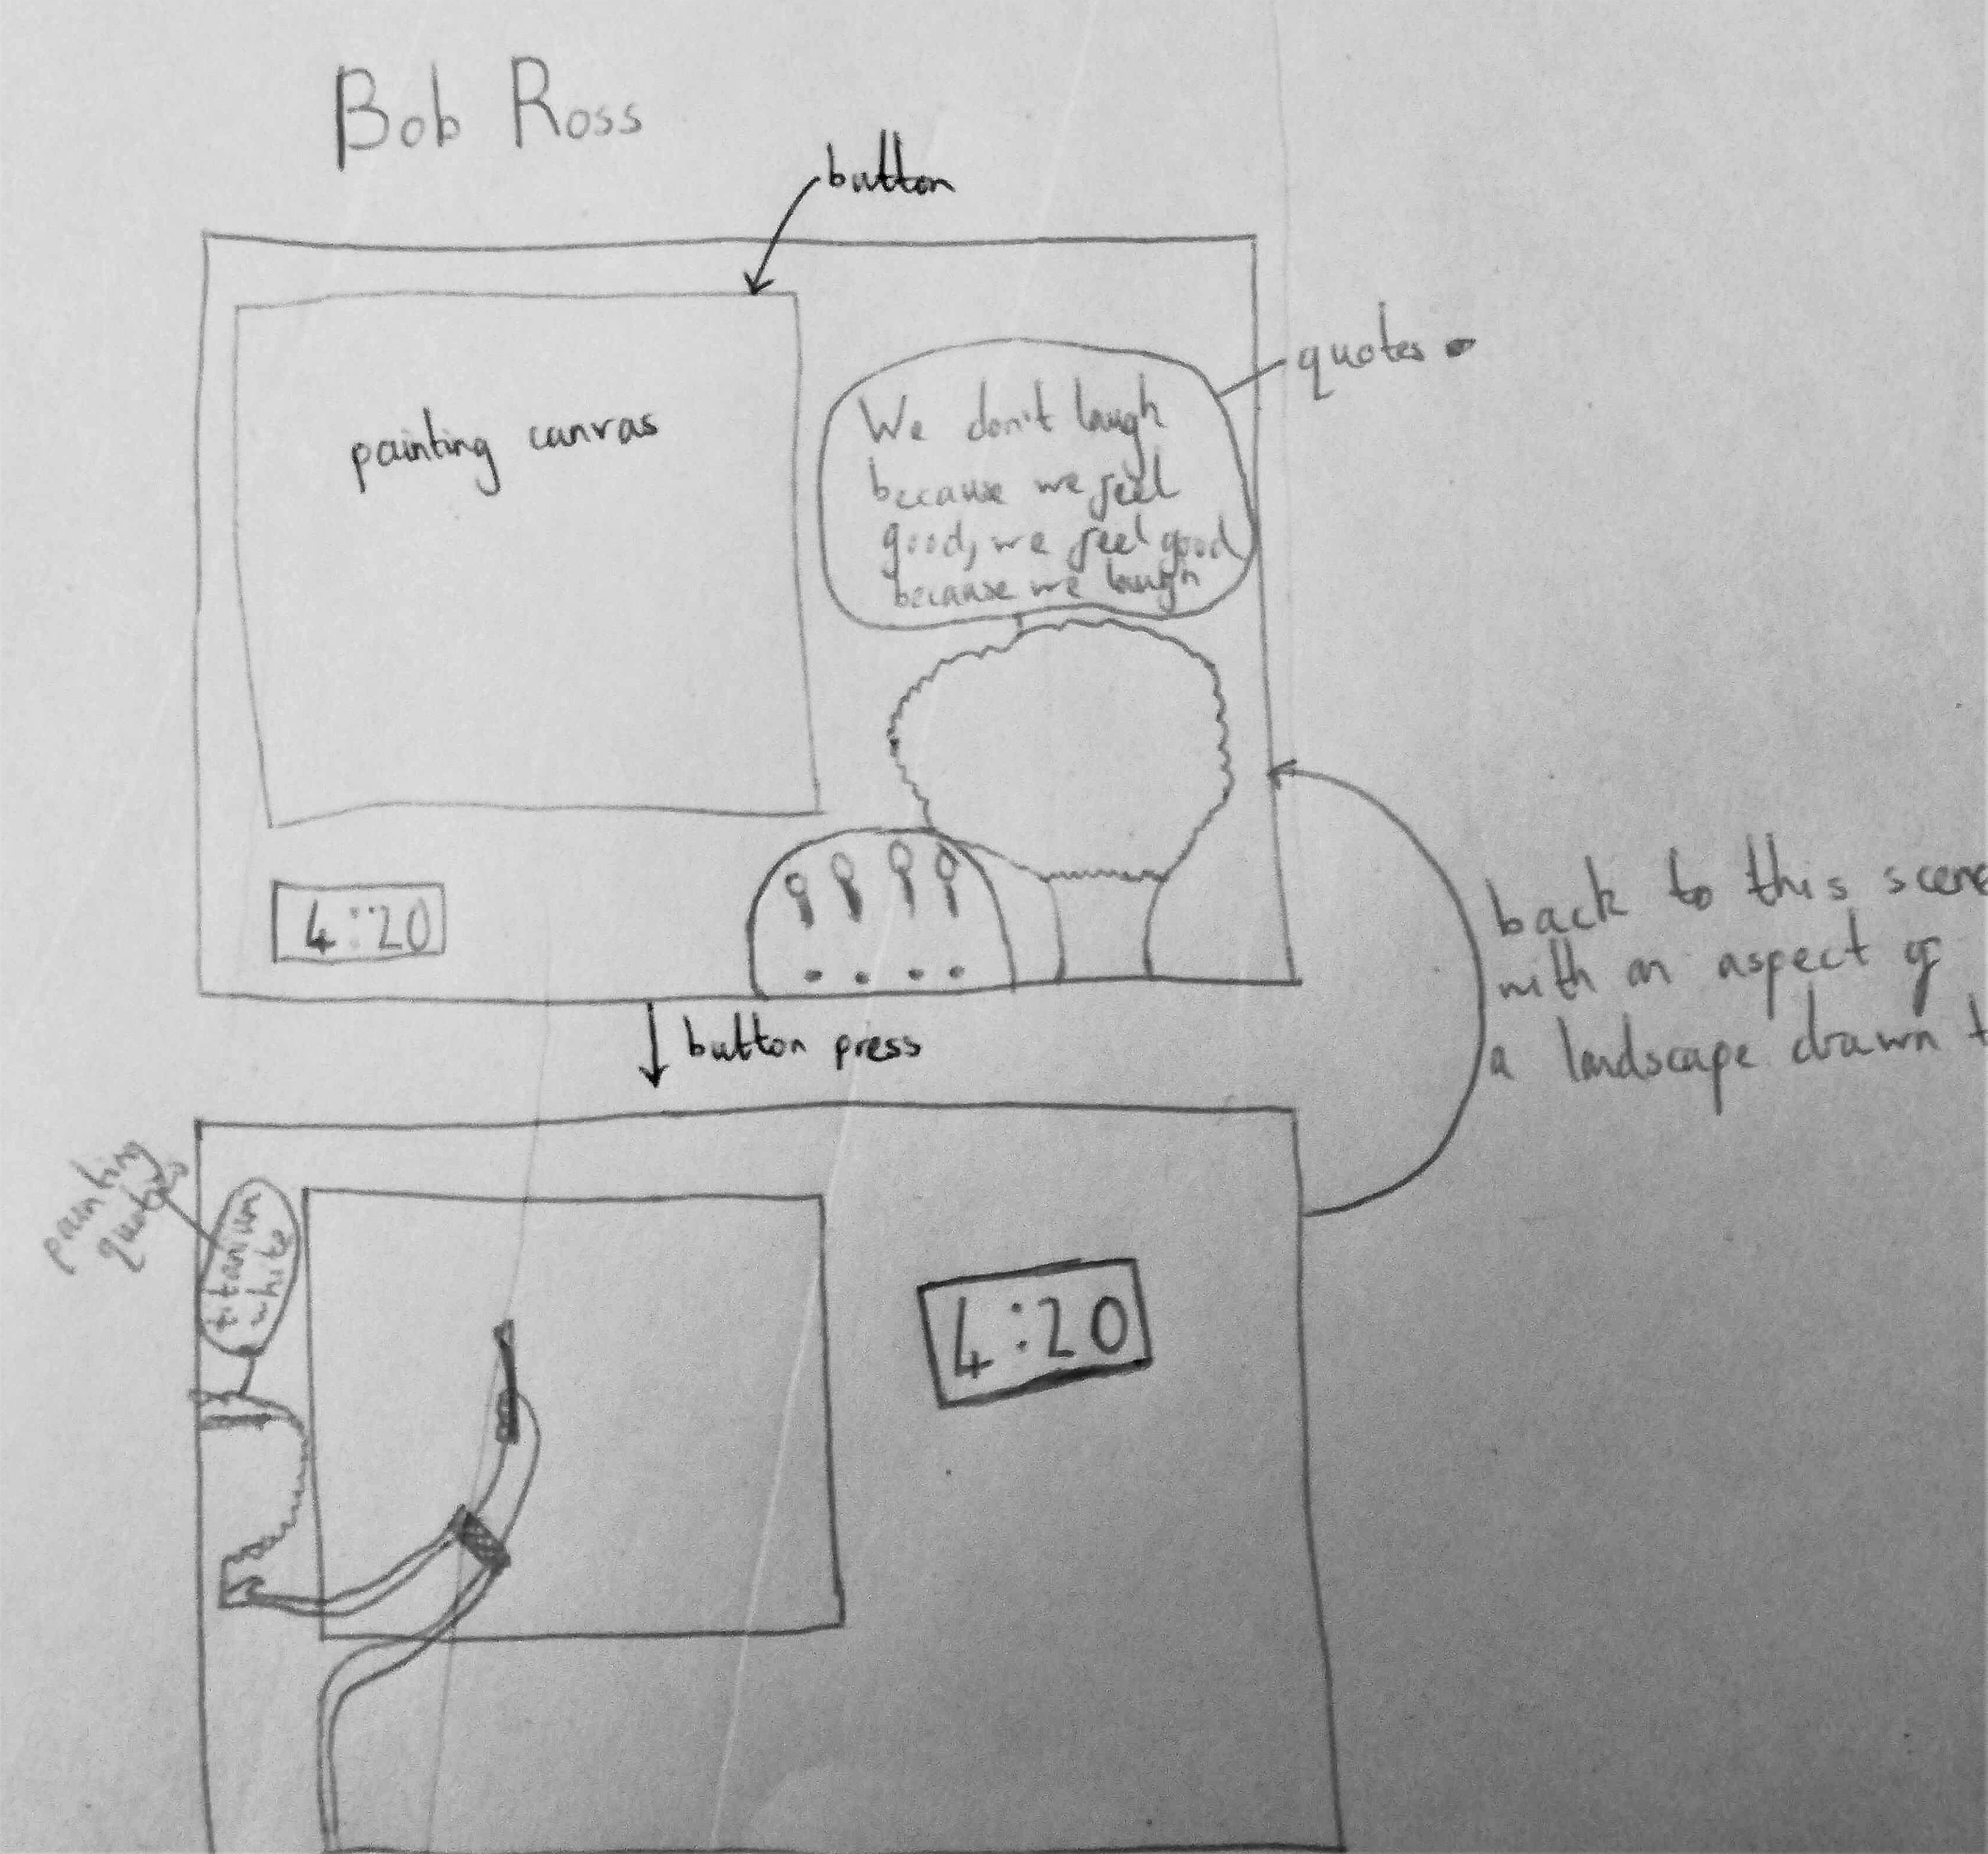 Bob Ross
button
quotes
painting canvas
We don't laugh
because we feel
good, we feel good
because we laugh
4:20
button press
back to this scene
with an aspect of
a landscape drawn
painting
quotes
titanium
white
4:20